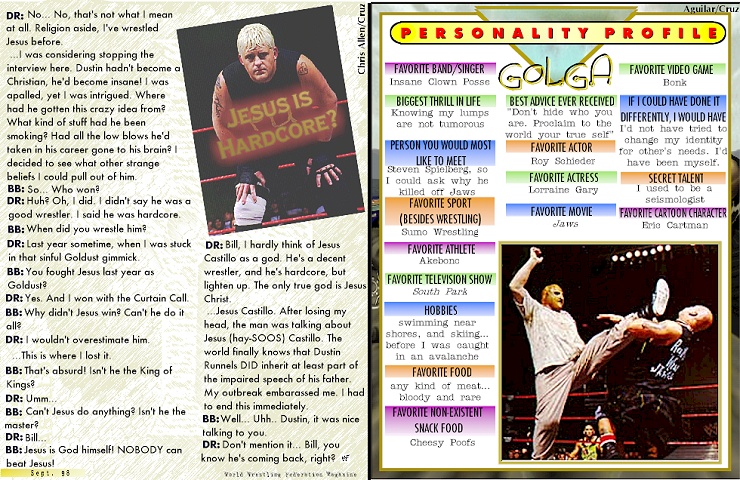 DR: No... No, that's not what I mean
at all. Religion aside, I've wrestled
Jesus before.
...I was considering stopping the
interview here. Dustin hadn't become a
Christian, he'd become insane! I was
apalled, yet I was intrigued. Where
had he gotten this crazy idea from?
What kind of stuff had he been
smoking? Had all the low blows he'd
taken in his career gone to his brain? I
decided to see what other strange
beliefs I could pull out of him.
BB: So... Who won?
DR: Huh? Oh, I did. I didn't say he was a
good wrestler. I said he was hardcore.
BB: When did you wrestle him?
DR: Last year sometime, when I was stuck
in that sinful Goldust gimmick.
BB: You fought Jesus last year as
Goldust?
DR: Yes. And I won with the Curtain Call.
BB: Why didn't Jesus win? Can't he do it
all?
DR: I wouldn't overestimate him.
...This is where I lost it.
BB: That's absurd! Isn't he the King of
Kings?
DR: Umm...
BB: Can't Jesus do anything? Isn't he the
master?
DR: Bill...
BB: Jesus is God himself! NOBODY can
beat Jesus!
Sept. 98
Chris Allen/Cruz
JESUS IS
HARDCORE?
DR: Bill, I hardly think of Jesus
Castillo as a god. He's a decent
wrestler, and he's hardcore, but
lighten up. The only true god is Jesus
Christ.
...Jesus Castillo. After losing my
head, the man was talking about
Jesus (hay-SOOS) Castillo. The
world finally knows that Dustin
Runnels DID inherit at least part of
the impaired speech of his father.
My outbreak embarassed me. I had
to end this immediately.
BB: Well... Uhh.. Dustin, it was nice
talking to you.
DR: Don't mention it... Bill, you
know he's coming back, right?
World Wrestling Federation Magazine
Aguilar/Cruz
PERSONALITY PROFILE
GOLGA
FAVORITE BAND/SINGER
Insane Clown Posse
BIGGEST THRILL IN LIFE
Knowing my lumps
are not tumorous
PERSON YOU WOULD MOST
LIKE TO MEET
Steven Spielberg, so
I could ask why he
killed off Jaws
FAVORITE SPORT
(BESIDES WRESTLING)
Sumo Wrestling
FAVORITE ATHLETE
Akebono
FAVORITE TELEVISION SHOW
South Park
HOBBIES
swimming near
shores, and skiing...
before I was caught
in an avalanche
FAVORITE FOOD
any kind of meat...
bloody and rare
FAVORITE NON-EXISTENT
SNACK FOOD
Cheesy Poofs
BEST ADVICE EVER RECEIVED
"Don't hide who you
are. Proclaim to the
world your true self"
FAVORITE ACTOR
Roy Schieder
FAVORITE ACTRESS
Lorraine Gary
FAVORITE MOVIE
Jaws
FAVORITE VIDEO GAME
Bonk
IF I COULD HAVE DONE IT
DIFFERENTLY, I WOULD HAVE
I'd not have tried to
change my identity
for other's needs. I'd
have been myself.
SECRET TALENT
I used to be a
seismologist
FAVORITE CARTOON CHARACTER
Eric Cartman